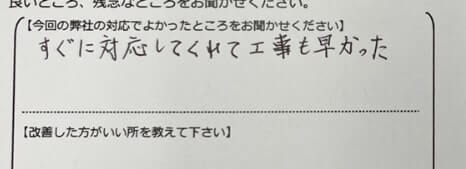 良いところ、残念なところをお聞かせください。
【今回の弊社の対応でよかったところをお聞かせください】
すぐに対応してくれて工事も早かった
【改善した方がいい所を教えて下さい】